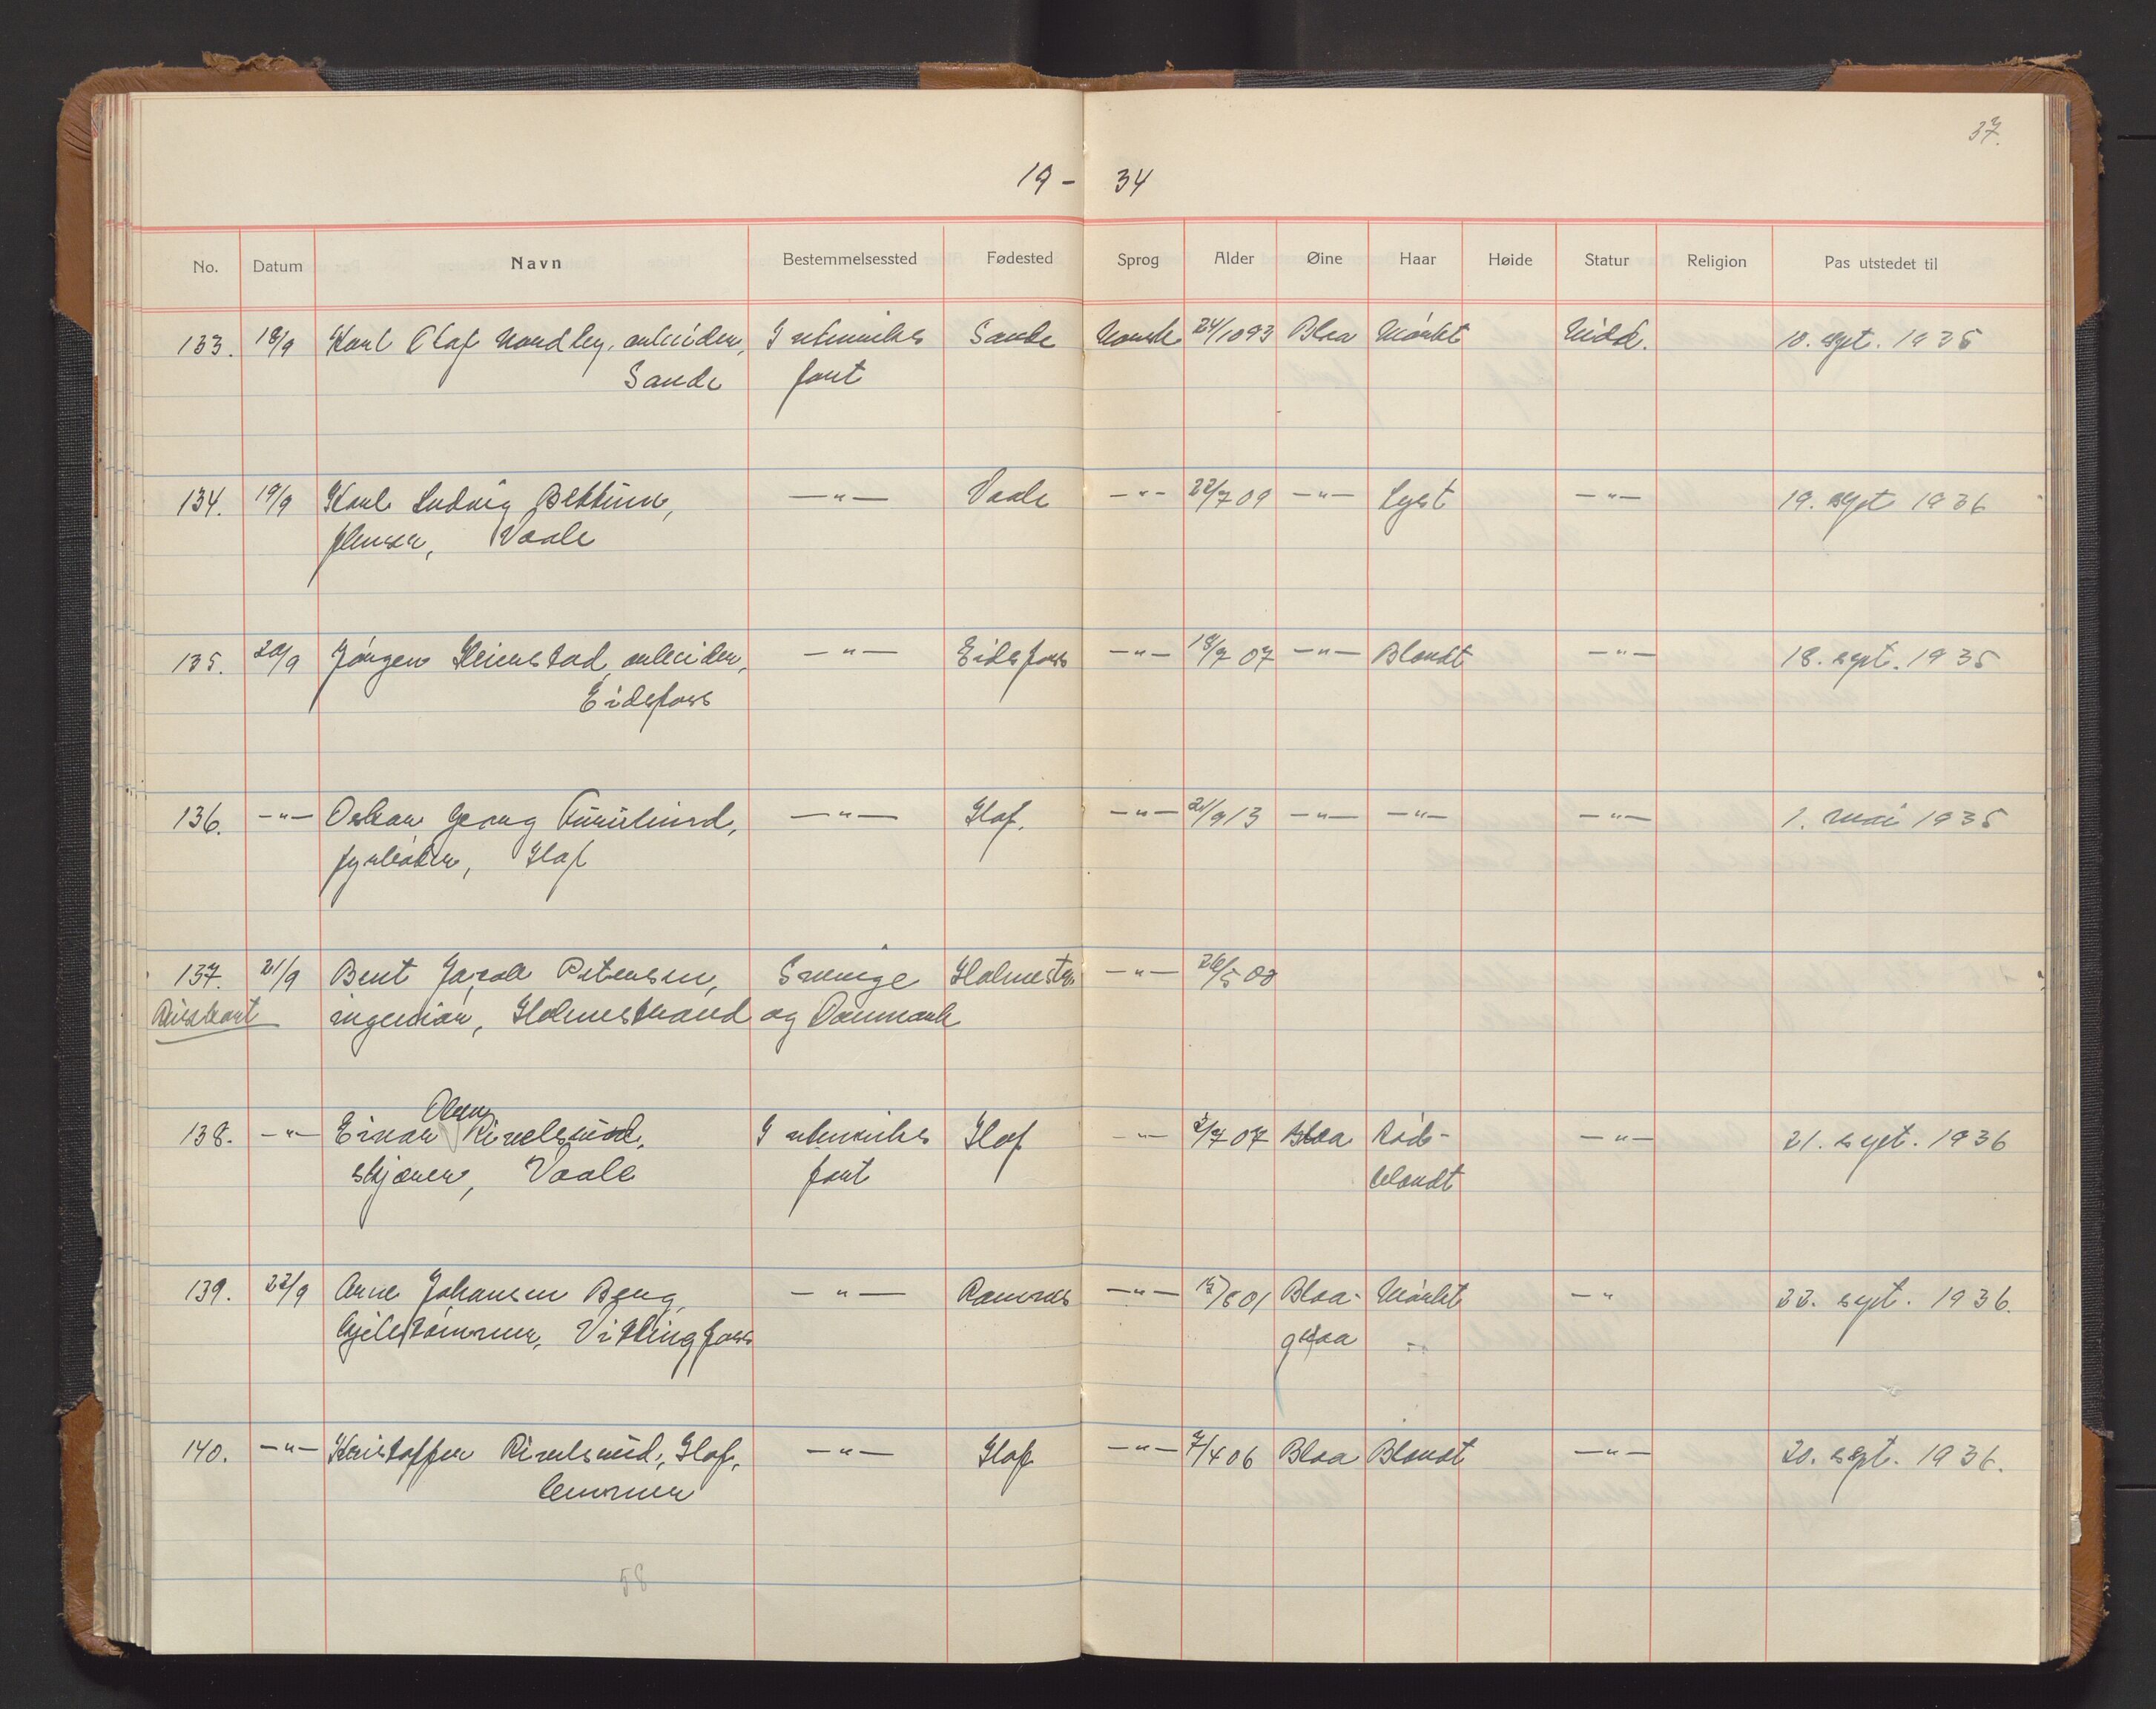 37.
19 - 34
No. Datum Navn Bestemmelsessted Fødested Sprog Alder Øine Haar Høide Statur Religion Pas utstedet til
133. 18/9 Karl Olaf Nordby, arbeider, I utenriks Sande Norsk 24/10 93 Blaa Mørkt Midd. 18. sept. 1935
Sande fart
134. 19/9 Karl Ludvig Bettum, —"— Vaale —"— 22/7 09 —"— Lyst —"— 19. sept 1936
flenser, Vaale
135. 20/9 Jørgen Heierstad, arbeider, —"— Eidsfoss —"— 18/7 07 —"— Blondt —"— 18. sept. 1935
Eidsfoss
136. —"— Oskar Georg —"— Hof. —"— 21/9 13 —"— —"— —"— 1. mai 1935
fyrbøter, Hof
137. 21/9 Bent Jacob Petersen, Sverige Holmestr. —"— 26/5 00
Reisekort ingeniør, Holmestrand og Danmark
Olsen
138. —"— Einar Revelsrud, I utenriks Hof —"— 2/7 07 Blaa Rød- —"— 21. sept. 1936
skjærer, Vaale fart blondt
139. 22/9 Arne Johansen Berg, —"— Ramnes —"— 15/6 01 Blaa- Mørkt —"— 22. sept. 1936.
hjelptømmer, Vittingfoss graa
140. —"— Kristoffer Revelsrud, Hof, —"— Hof —"— 7/4 06 Blaa Blondt —"— 20. sept. 1936.
lemmer
58